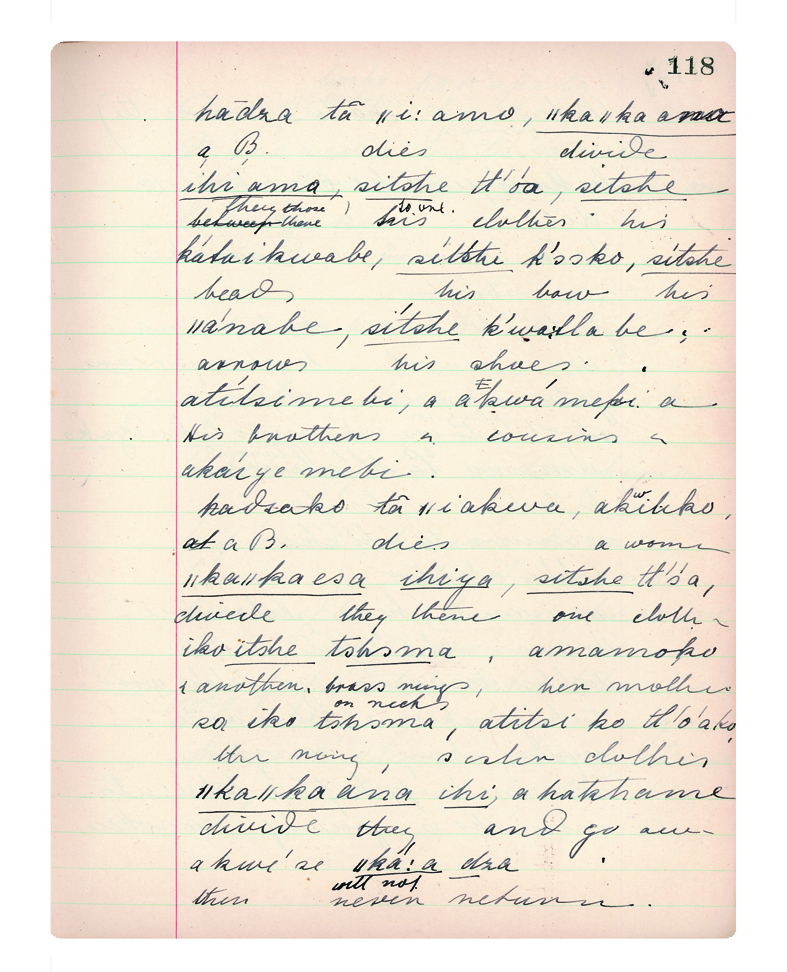 118
hādza tā ǁi: amo, ǁkaǁkaama
a B. dies divide
ihi ama, sitshe tl'óa, sitshe
they those to one.
between there his clothes his
kátaikwabe, sítshe k'ɔsko, sítshe
beads his bow his
ǁánabe, sítshe k'watlabe;
arrows his shoes
atítsimebi, a akwámebi a
His brothers & cousins &
akaíyemebi.
hadzako tā ǁiakwa, akwitiko,
at a B. dies a woman
ǁkaǁkaesa ihiya, sitshe tl'óa,
divide they there one cloth
iko itshe tshɔma, amamoko
& another. brass rings, her mother
on necks
sa iko tshɔma, atitsi ko tl'óako,
the ring, sister clothes
ǁkaǁkaana ihi, a hakhame
divide they and go aw-
akwí se ǁká: a dza
will not
then never return.